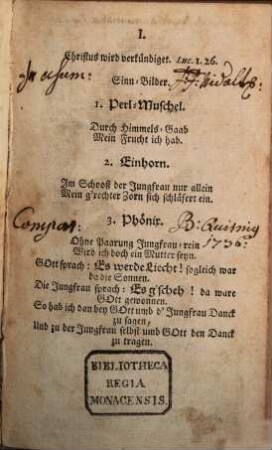 I.
Christus wird verkündiget. Luc. 1. 26.
Sinn-Bilder.
1. Perl-Muschel.
Durch Himmels-Gaab
Mein Frucht ich hab.
2. Einhorn.
Im Schooß der Jungfrau nur allein
Mein g'rechter Zorn sich schläfert ein.
3. Phönix.
Ohne Paarung Jungfrau-rein
Wird ich doch ein Mutter seyn.
GOtt sprach: Es werde Liecht! sogleich war
da die Sonnen.
Die Jungfrau sprach: Es g'scheh! da ware
GOtt gewonnen.
So hab ich dan bey GOtt und d' Jungfrau Danck
zu sagen,
Und zu der Jungfrau selbst und GOtt den Danck
zu tragen.
BIBLIOTHECA
REGIA
MONACENSIS.